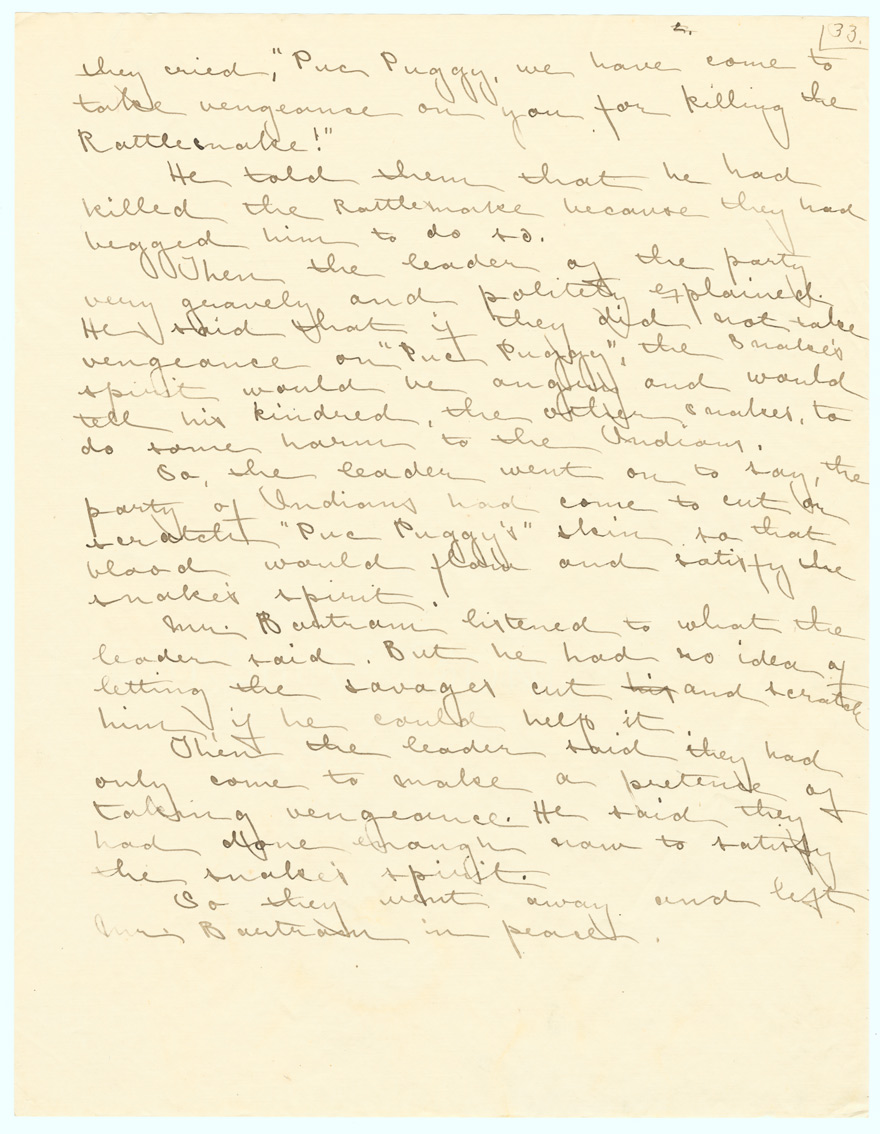 2.
33.
they cried, "Puc Puggy, we have come to
take vengeance on you for killing the
Rattlesnake!"
He told them that he had
killed the Rattlesnake because they had
begged him to do so.
Then the leader of the party
very gravely and politely explained.
He said that if they did not take
vengeance on "Puc Puggy", the Snake's
spirit would be angry and would
tell his kindred, the other snakes, to
do some harm to the Indians.
So, the leader went on to say, the
party of Indians had come to cut or
scratch "Puc Puggy's" skin so that
blood would flow and satisfy the
snake's spirit.
Mr. Bartram listened to what the
leader said. But he had no idea of
letting the savages cut his and scratch
him if he could help it.
Then the leader said they had
only come to make a pretense of
taking vengeance. He said they
had done enough now to satisfy
the snake's spirit.
So they went away and left
Mr. Bartram in peace.